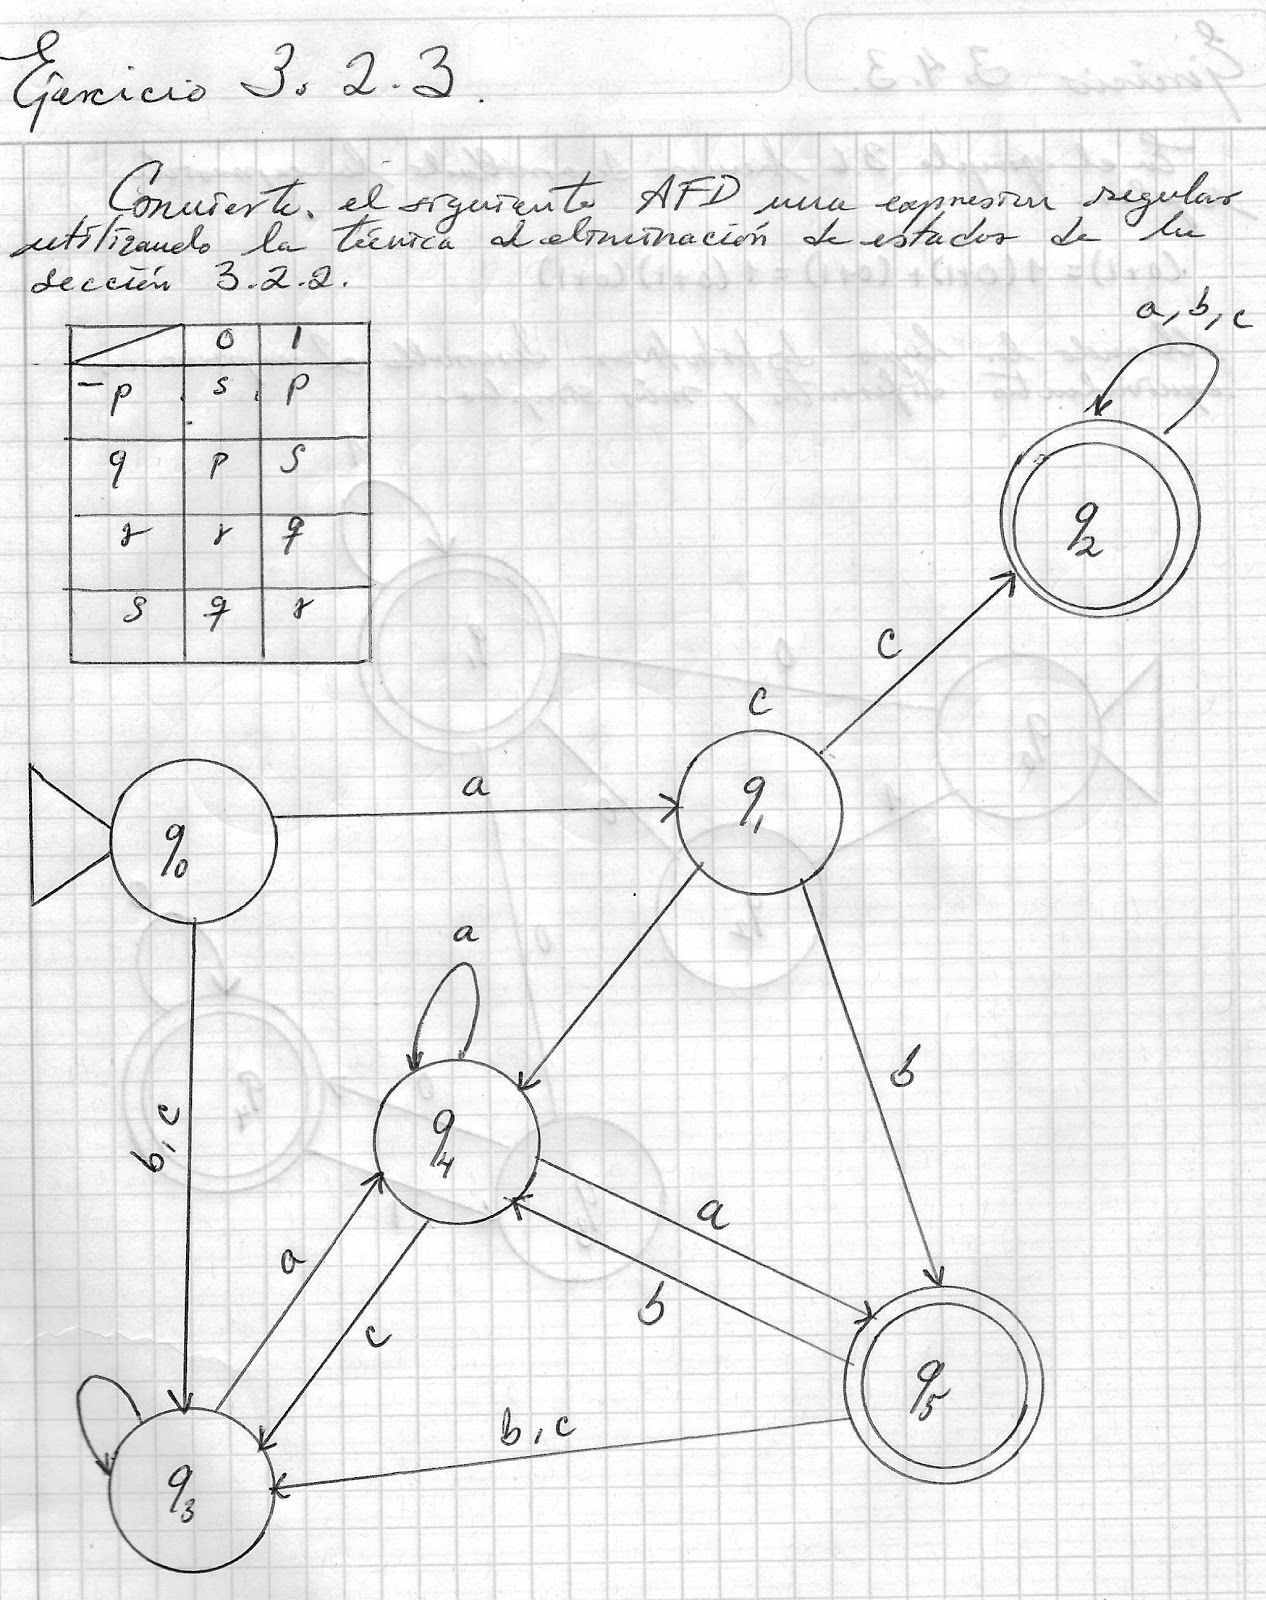 Ejercicio 3.2.3.
Convierte el siguiente AFD una expresion regular
utilizando la técnica de eliminación de estados de la
sección 3.2.2.
0 1
-p s p
q p s
r r q
s q r
a, b, c
q2
c
c
q1
a
q0
a
b
b, c
q4
a
a
b
c
q5
b, c
q3